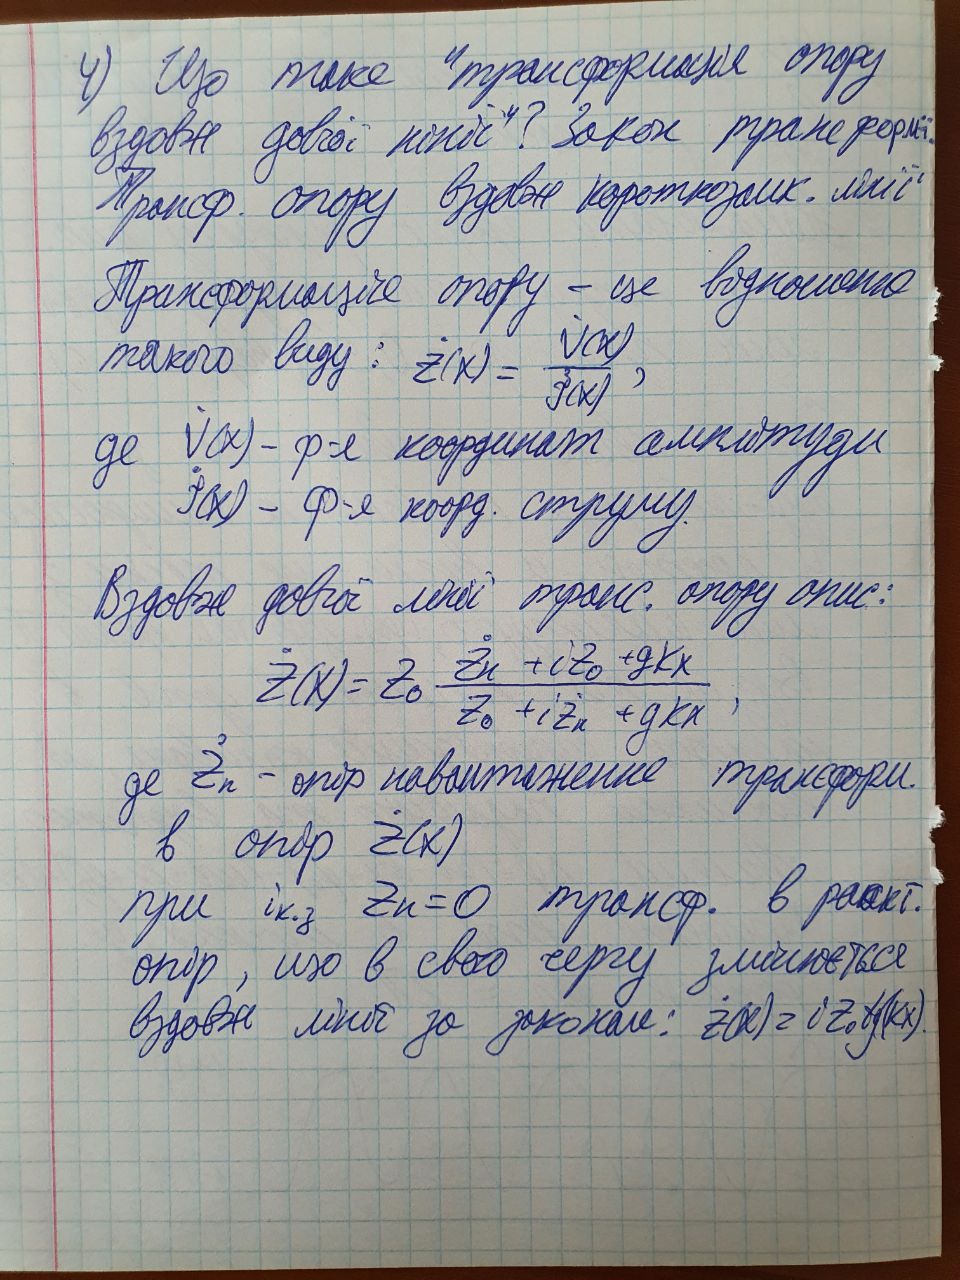 4) Що таке "трансформація опору
вздовж довгої лінії"? Закон трансформації.
Трансф. опору вздовж короткозамк. лінії
Трансформація опору – це відношення
такого виду: Ż(x) = V̇(x) / İ(x) ,
де V̇(x) – ф-я координат амплітуди
İ(x) – ф-я коорд. струму.
Вздовж довгої лінії транс. опору опис:
Ż(x) = Z₀ (Żн + iZ₀ tg kx) / (Z₀ + iŻн tg kx) ,
де Żн – опір навантаження трансформ.
в опір Ż(x)
при iк.з Zн = 0 трансф. в реакт.
опір, що в свою чергу змінюється
вздовж лінії за законом: Ż(x) = iZ₀ tg(kx).